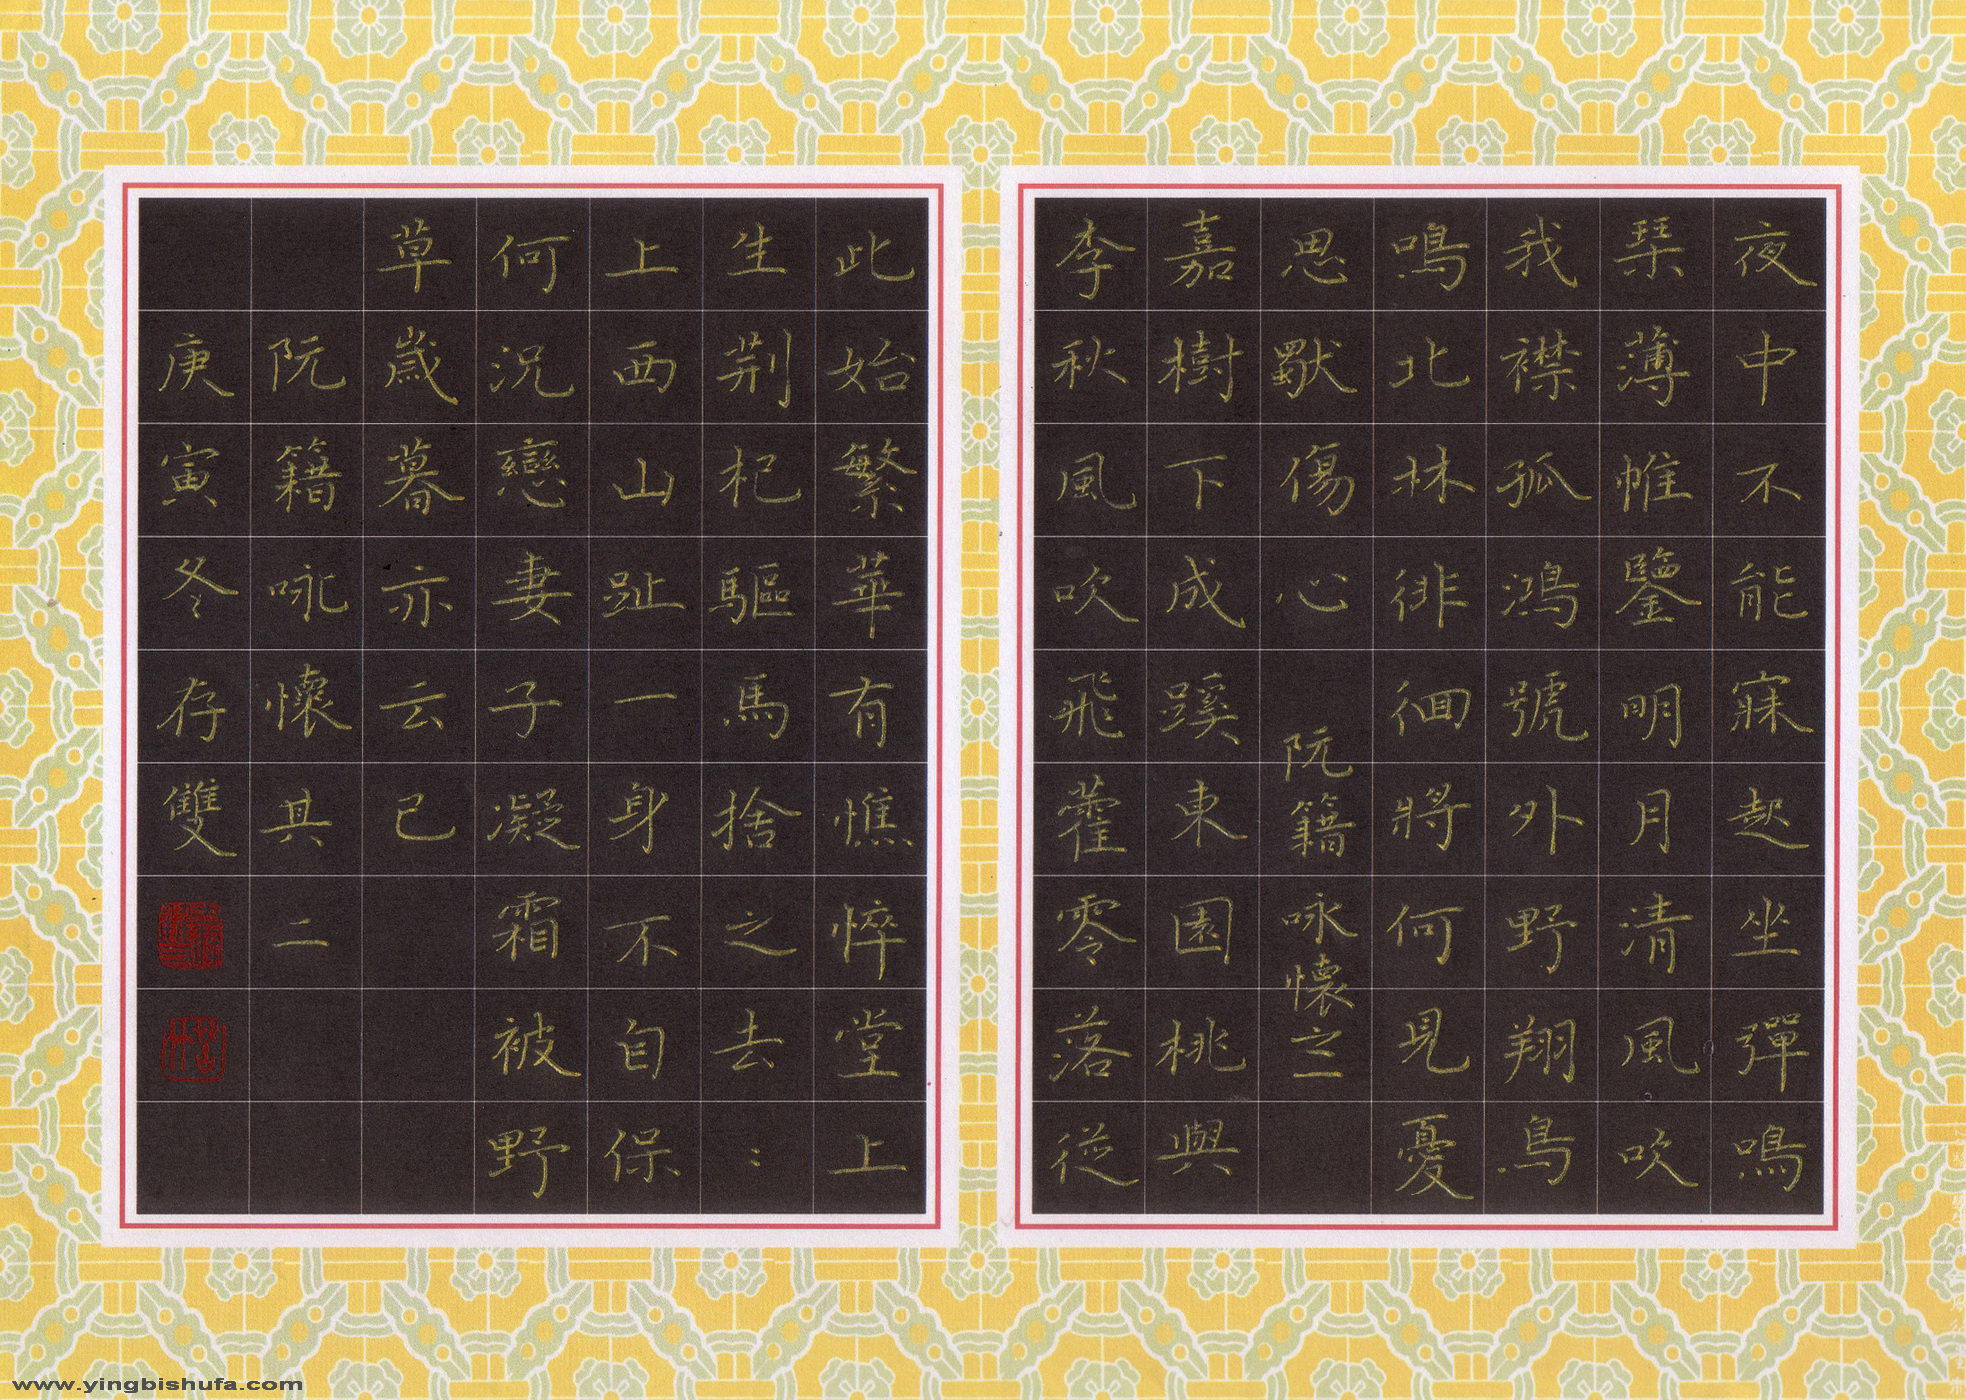 夜中不能寐起坐彈鳴
琹薄帷鑒明月清風吹
我襟孤鴻號外野翔鳥
鳴北林徘徊將何見憂
思獸傷心 阮籍咏懷之一
嘉樹下成蹊東園桃與
李秋風吹飛藿零落從
此始繁華有憔悴堂上
生荆杞驅馬捨之去::
上西山趾一身不自保
何況戀妻子凝霜被野
草歲暮亦云已
阮籍咏懷其二
庚寅冬存雙
www.yingbishufa.com